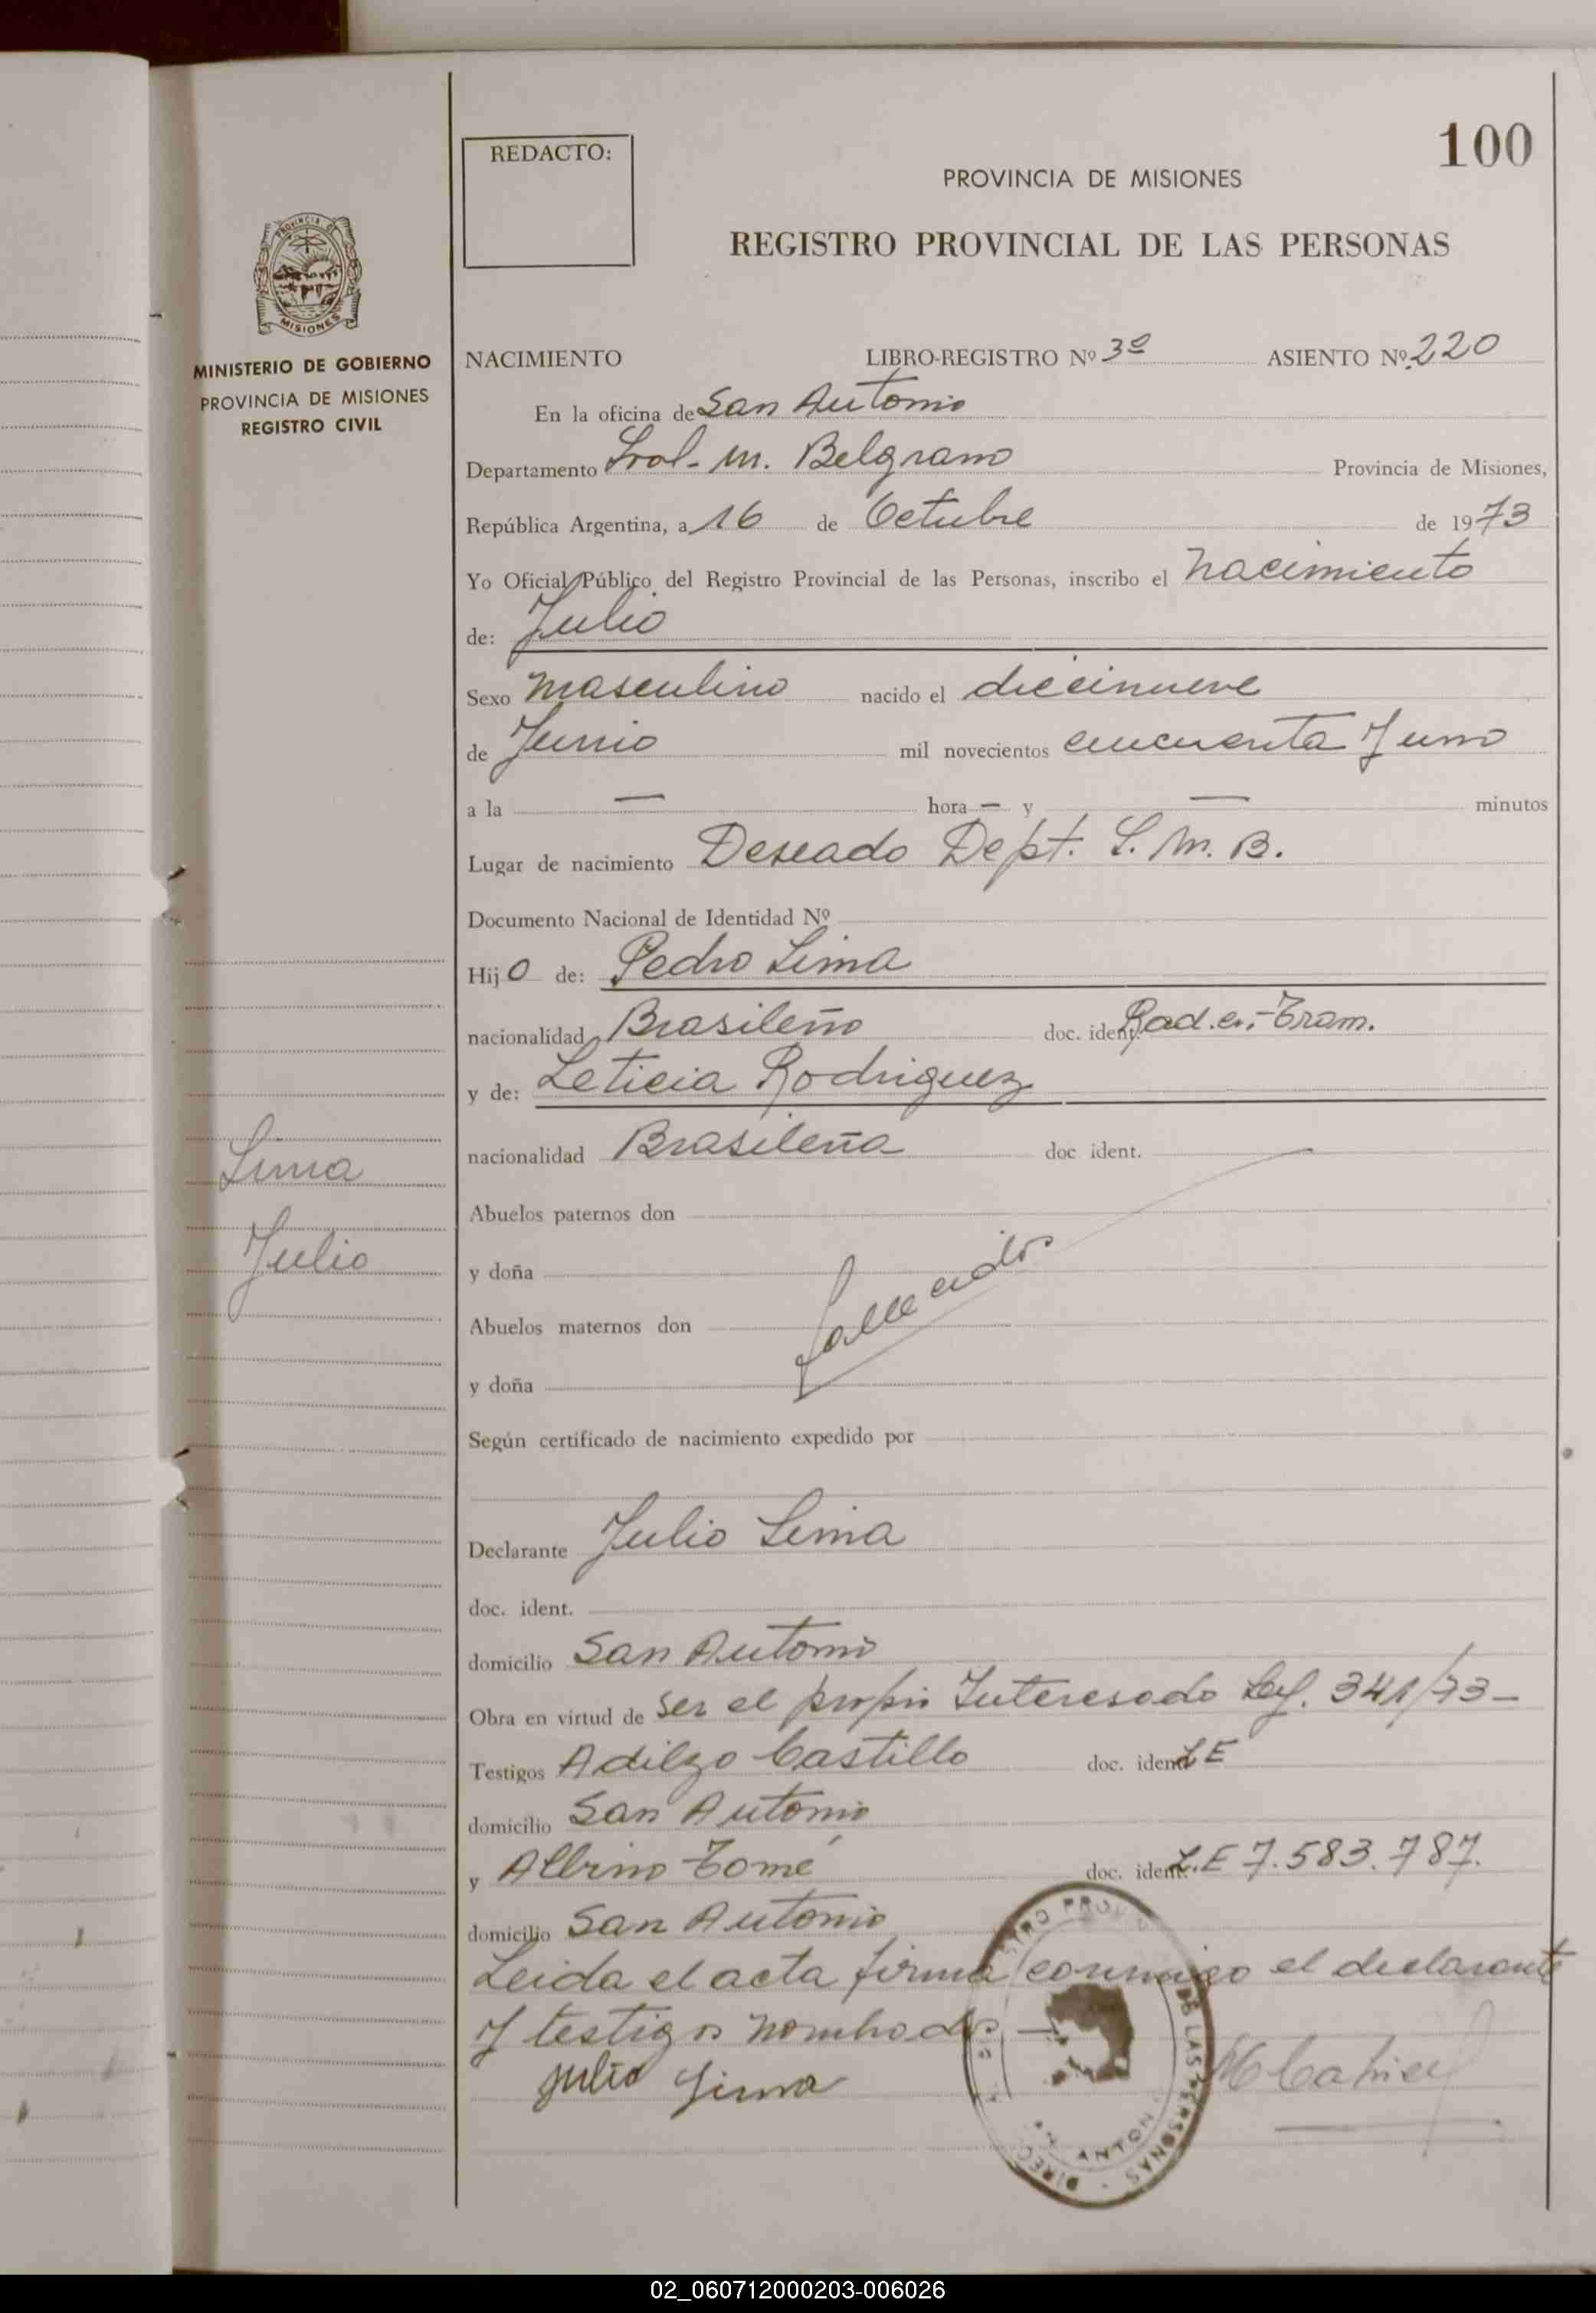 100
REDACTO:
PROVINCIA DE MISIONES
REGISTRO PROVINCIAL DE LAS PERSONAS
PROVINCIA DE
MISIONES
MINISTERIO DE GOBIERNO
PROVINCIA DE MISIONES
REGISTRO CIVIL
NACIMIENTO LIBRO-REGISTRO Nº 3º ASIENTO Nº 220
En la oficina de San Antonio
Departamento Gral. M. Belgrano Provincia de Misiones,
República Argentina, a 16 de Octubre de 1973
Yo Oficial Público del Registro Provincial de las Personas, inscribo el nacimiento
de: Julio
Sexo masculino nacido el diecinueve
de Junio mil novecientos cincuenta y uno
a la — hora — y — minutos
Lugar de nacimiento Deseado Dept. G. M. B.
Documento Nacional de Identidad Nº
Hijo de: Pedro Lima
nacionalidad Brasileño doc. ident. Rad. en Tram.
y de: Leticia Rodriguez
nacionalidad Brasileña doc ident.
Lima
Julio
Abuelos paternos don
y doña
fallecidos
Abuelos maternos don
y doña
Según certificado de nacimiento expedido por
Declarante Julio Lima
doc. ident.
domicilio San Antonio
Obra en virtud de ser el propio Interesado Ley. 341/73-
Testigos Adilzo Castillo doc. ident. LE
domicilio San Antonio
y Albino Tomé doc. ident. L.E 7.583.787.
domicilio San Antonio
Leida el acta firma conmigo el declarante
y testigos nombrados —
julio Lima
02_060712000203-006026